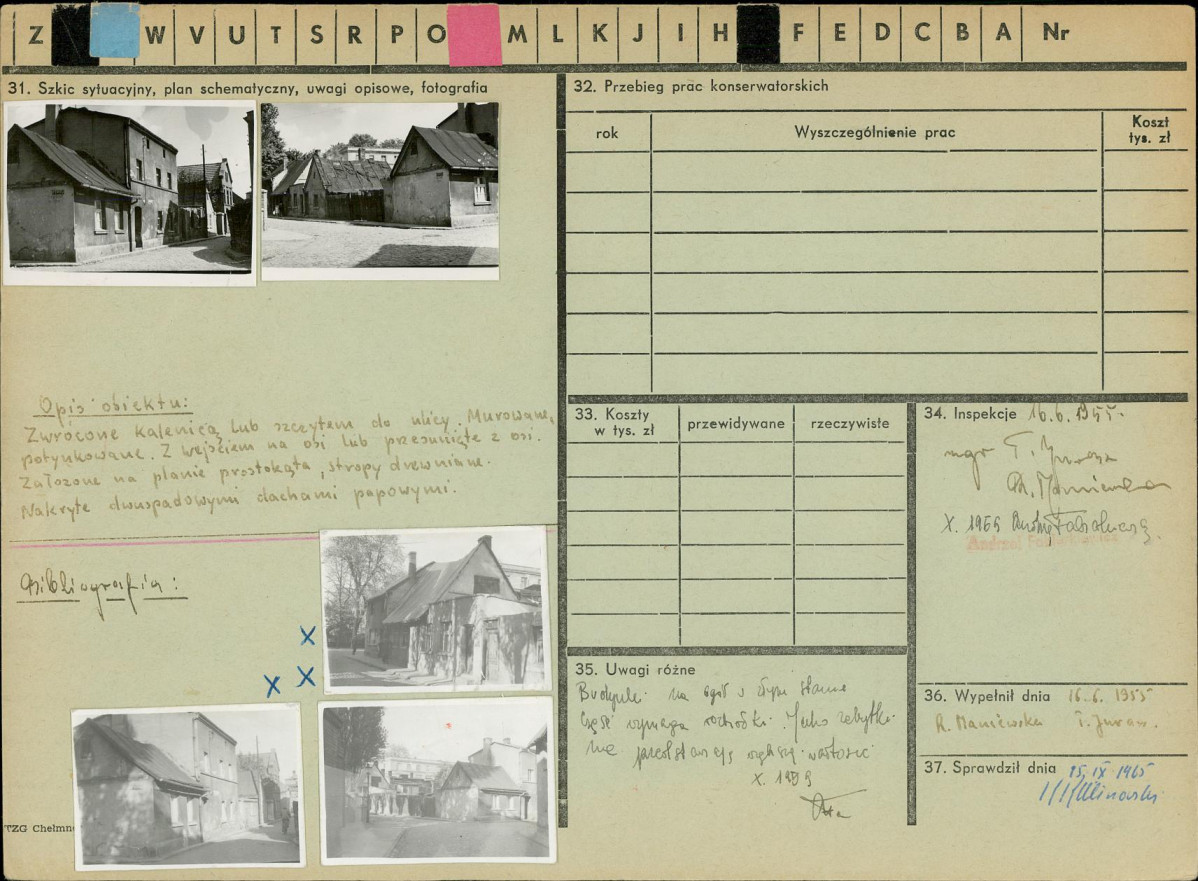 Z W V U T S R P O M L K J I H F E D C B A Nr
31. Szkic sytuacyjny, plan schematyczny, uwagi opisowe, fotografia
Opis obiektu:
Zwrócone kalenicą lub szczytem do ulicy. Murowane,
potynkowane. Z wejściem na osi lub przesunięte z osi.
Założone na planie prostokąta, stropy drewniane.
Nakryte dwuspadowymi dachami papowymi.
Bibliografia:
x
x x
TZG Chełmn
32. Przebieg prac konserwatorskich
rok Wyszczególnienie prac Koszt
tys. zł
33. Koszty
w tys. zł przewidywane rzeczywiste
34. Inspekcje 16.6.1955.
mgr T.
X. 1959
Andrzej
35. Uwagi różne
Budynki na ogół w złym stanie
część wymaga rozbiórki. Jako zabytki
nie przedstawiają większej wartości
X. 1959
36. Wypełnił dnia 16.6.1955
R. Maniewska T. Juraw.
37. Sprawdził dnia 15.IX 1965